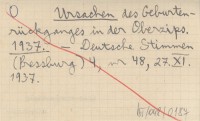 O Ursachen des Geburten-
rückganges in der Oberzips.
1937. — Deutsche Stimmen
(Pressburg) 4, nr 48, 27.XI.
1937.